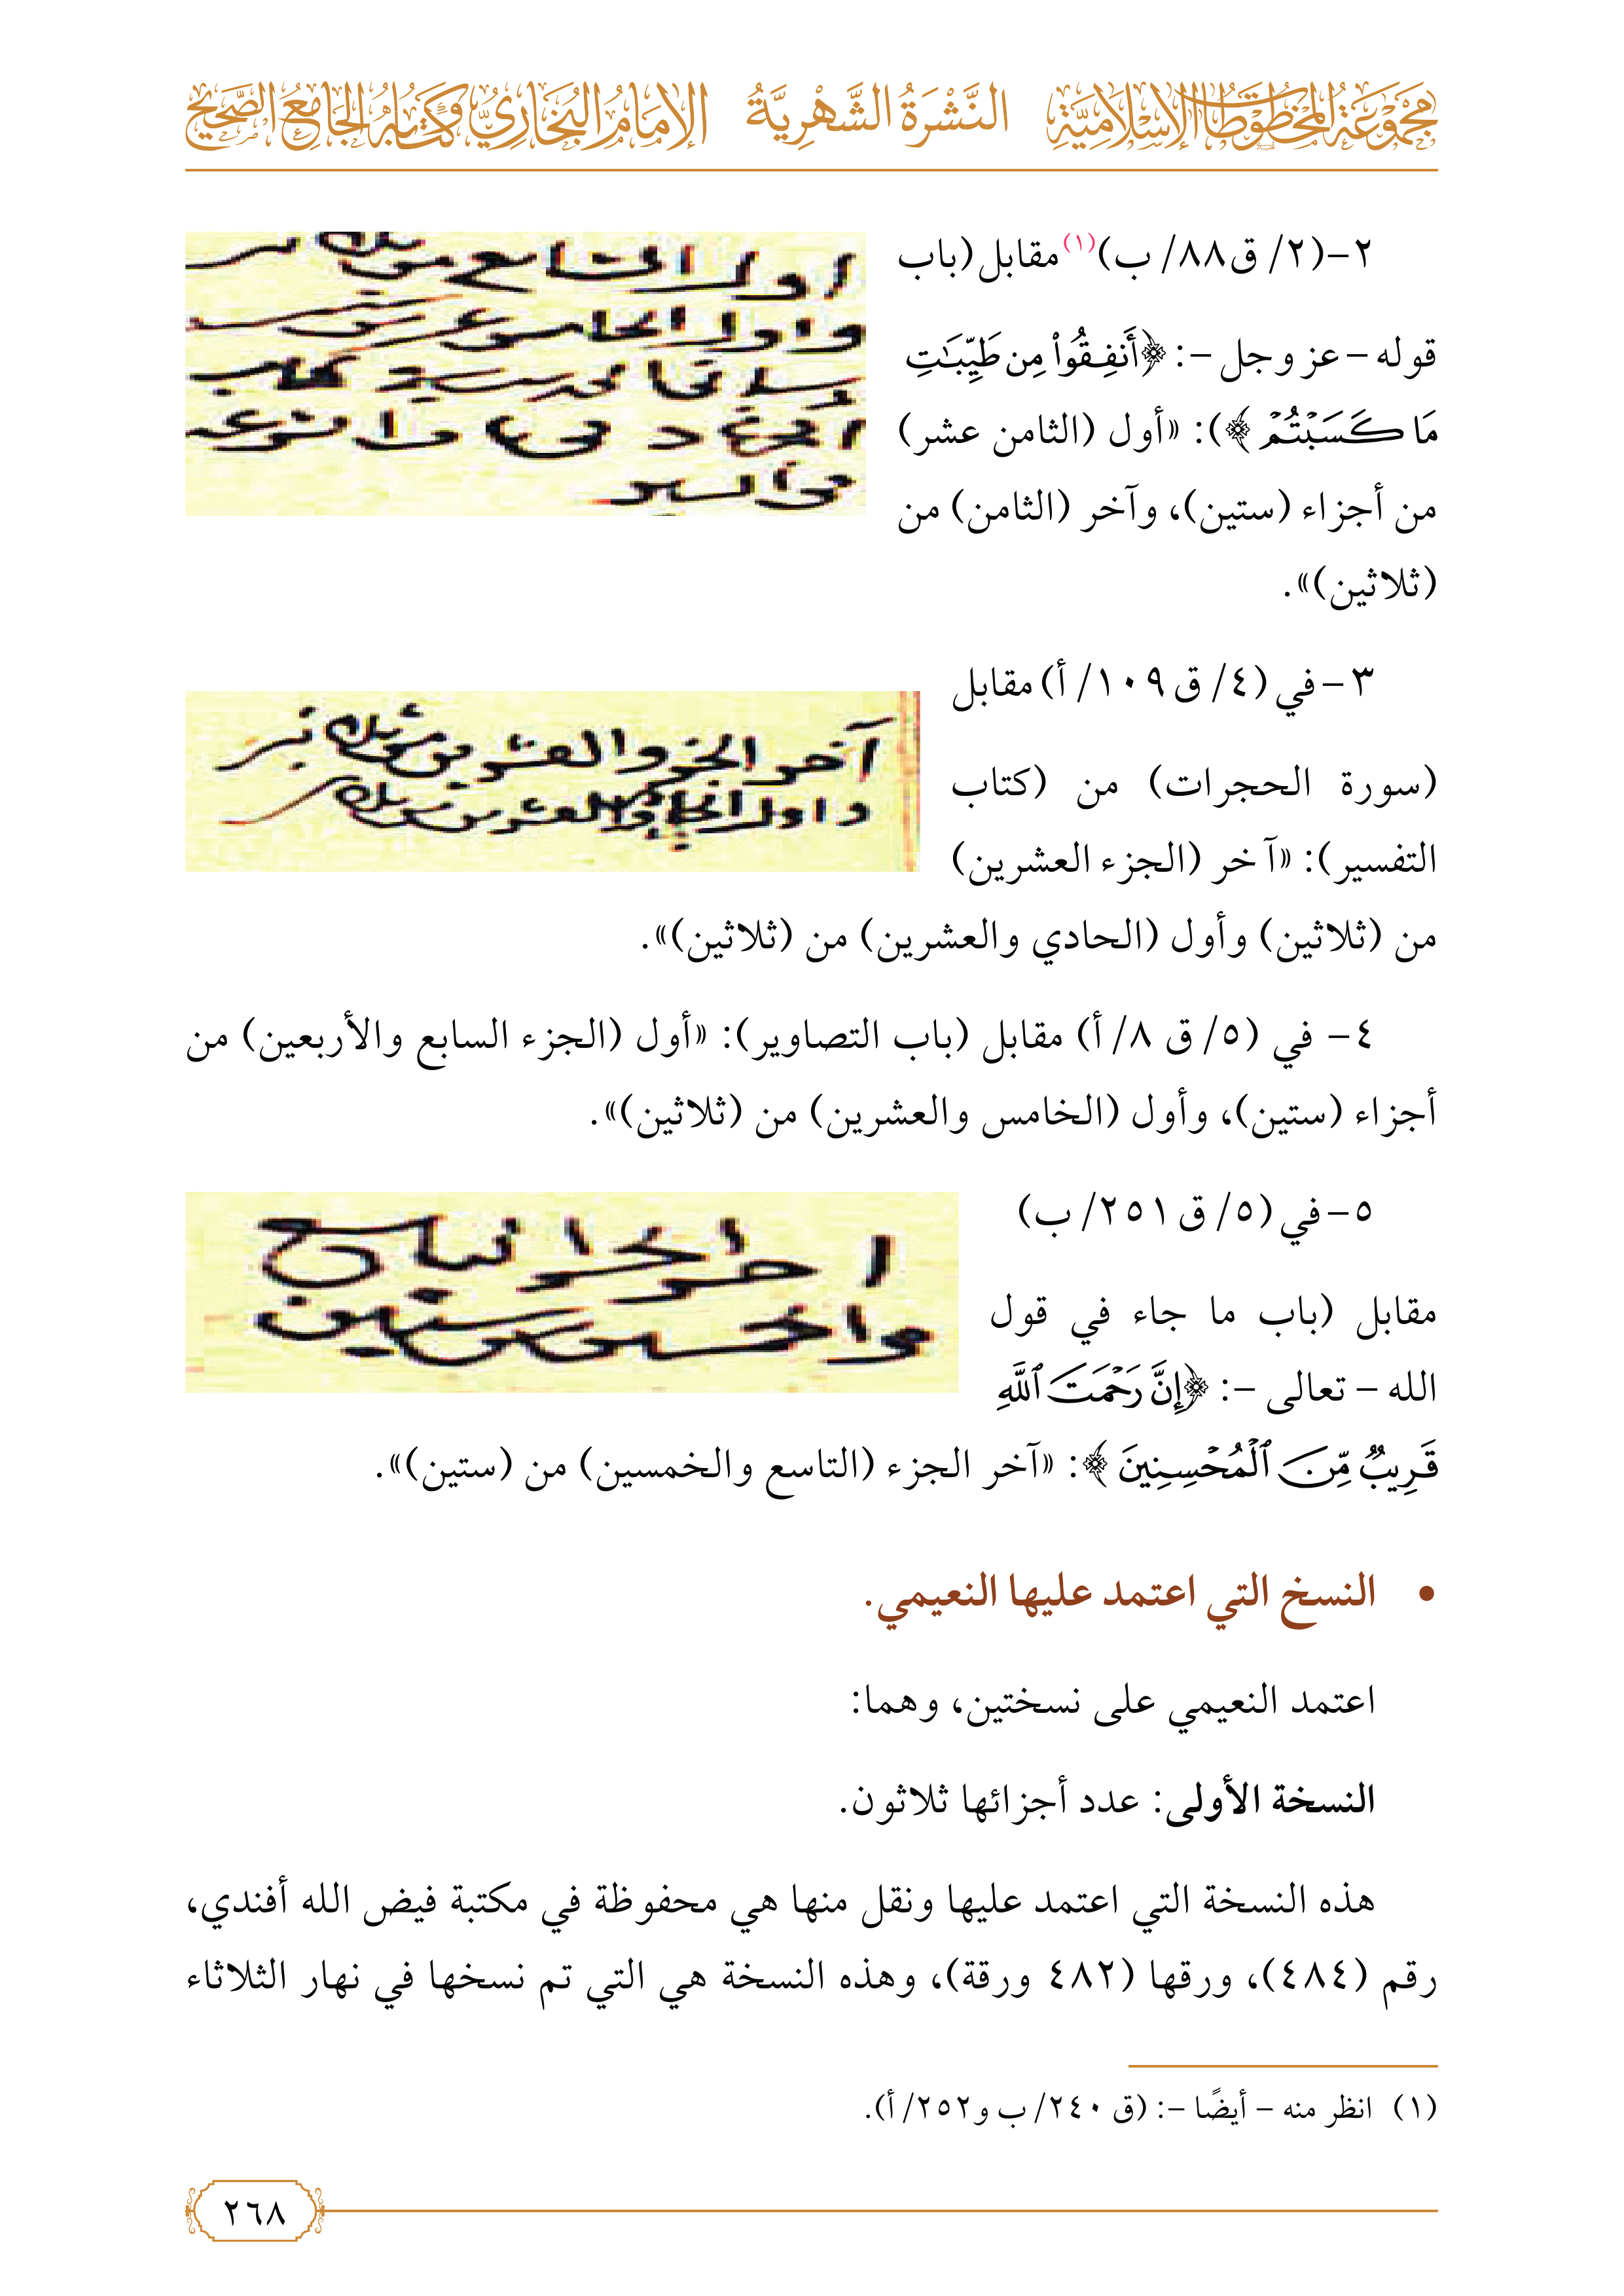 مَجْمُوعَةُ المَخْطُوطَاتِ الإِسْلَامِيَّةِ النَّشْرَةُ الشَّهْرِيَّةُ الإِمَامُ البُخَارِيُّ وَكِتَابُهُ الجَامِعُ الصَّحِيحُ
٢-(٢/ ق٨٨/ ب)(١) مقابل (باب
قوله – عز وجل –: ﴿أَنفِقُوا۟ مِن طَيِّبَـٰتِ
مَا كَسَبْتُمْ﴾): «أول (الثامن عشر)
من أجزاء (ستين)، وآخر (الثامن) من
(ثلاثين)».
٣-في (٤/ ق ١٠٩/ أ) مقابل
آخر الجزء والعشرين من ثلاثين
واول الحادي والعشرين من ثلاثين
(سورة الحجرات) من (كتاب
التفسير): «آخر (الجزء العشرين)
من (ثلاثين) وأول (الحادي والعشرين) من (ثلاثين)».
٤- في (٥/ ق ٨/ أ) مقابل (باب التصاوير): «أول (الجزء السابع والأربعين) من
أجزاء (ستين)، وأول (الخامس والعشرين) من (ثلاثين)».
٥-في (٥/ ق ٢٥١/ ب)
مقابل (باب ما جاء في قول
الله – تعالى –: ﴿إِنَّ رَحْمَتَ ٱللَّهِ
قَرِيبٌ مِّنَ ٱلْمُحْسِنِينَ﴾: «آخر الجزء (التاسع والخمسين) من (ستين)».
• النسخ التي اعتمد عليها النعيمي.
اعتمد النعيمي على نسختين، وهما:
النسخة الأولى: عدد أجزائها ثلاثون.
هذه النسخة التي اعتمد عليها ونقل منها هي محفوظة في مكتبة فيض الله أفندي،
رقم (٤٨٤)، ورقها (٤٨٢ ورقة)، وهذه النسخة هي التي تم نسخها في نهار الثلاثاء
(١) انظر منه – أيضًا –: (ق ٢٤٠/ ب و٢٥٢/ أ).
٢٦٨